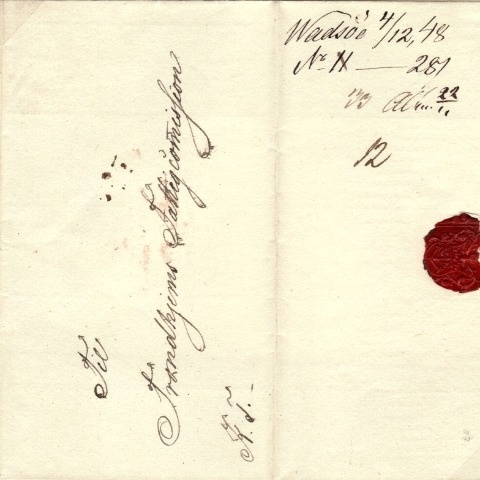 Wadsöe 4/12, 48
No 11 — 281
22
12
Til
Trondhjems Fattigcomission
K. T. -